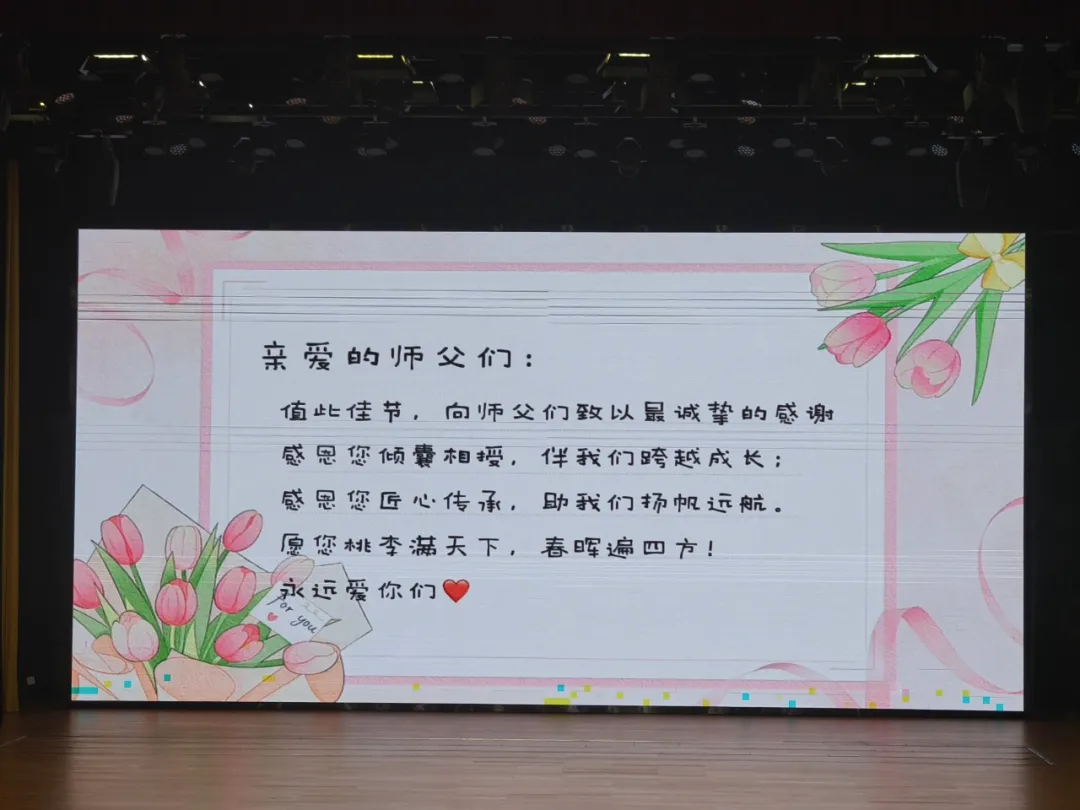 亲爱的师父们：
值此佳节，向师父们致以最诚挚的感谢
感恩您倾囊相授，伴我们跨越成长；
感恩您匠心传承，助我们扬帆远航。
愿您桃李满天下，春晖遍四方！
永远爱你们❤️
for you